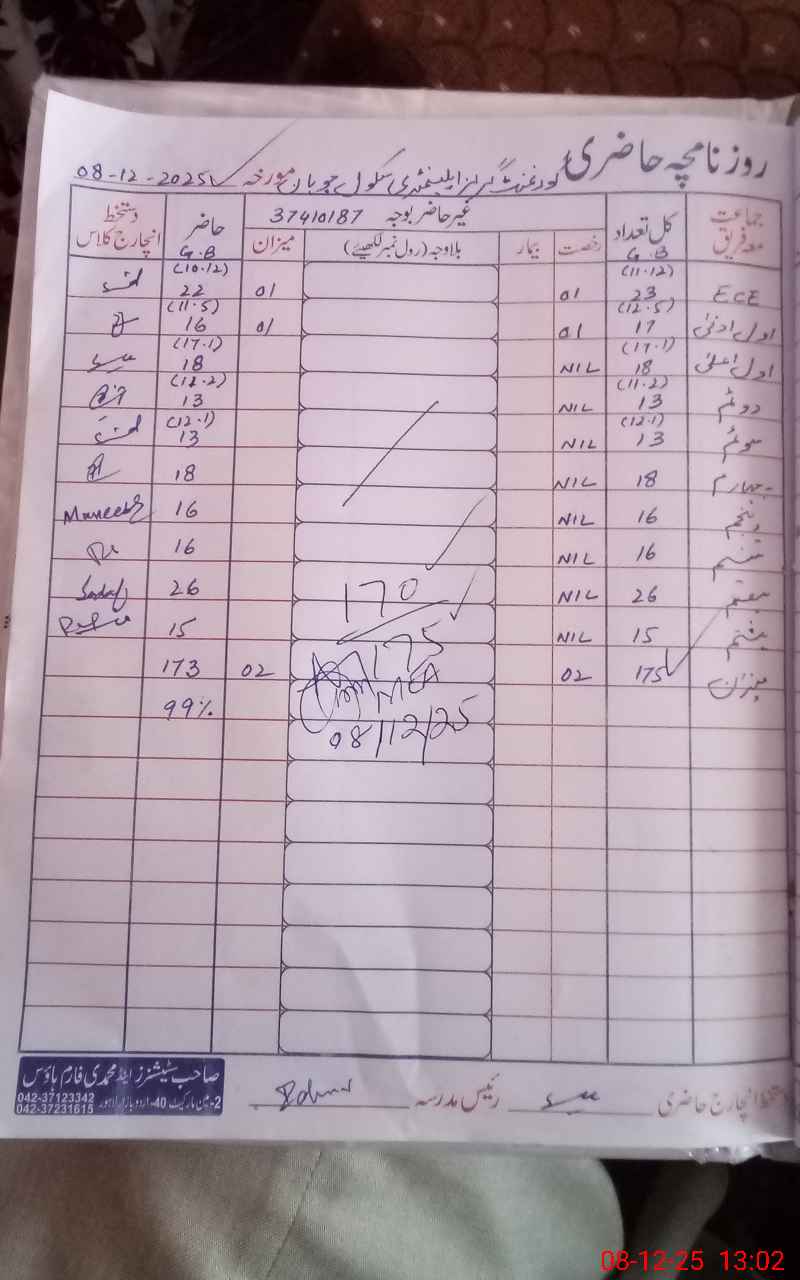 روزنامچہ حاضری
گورنمنٹ گرلز ایلیمنٹری سکول جوہان مورخہ 08-12-2025
جماعت معہ فریق کل تعداد غیر حاضر بوجہ 37410187 حاضر دستخط انچارج کلاس
G.B رخصت بیمار بلاوجہ (رول نمبر لکھیئے) میزان G.B
(11.12) (10.12)
ECE 23 01 01 22
(12.5) (11.5)
اول ادنیٰ 17 01 01 16
(17.1) (17.1)
اول اعلیٰ 18 NIL 18
(11.2) (12.2)
دوئم 13 NIL 13
(12.1) (12.1)
سوئم 13 NIL 13
چہارم 18 NIL 18
پنجم 16 NIL 16 Muneeba
ششم 16 NIL 16
ہفتم 26 NIL 170 26 Sadaf
ہشتم 15 NIL 175 15
میزان 175 02 MEA 02 173
08/12/25 99%
دستخط انچارج حاضری رئیس مدرسہ
صاحب سٹیشنرز اینڈ محمدی فارم ہاؤس
2-مین مارکیٹ 40-اردو بازار لاہور
042-37123342
042-37231615
08-12-25 13:02